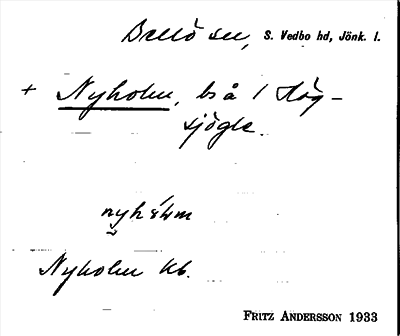 Bellö sn, S. Vedbo hd, Jönk. l.
+ Nyholm, bs å / Hög-
sjögle.
Nyholm Kb.
FRITZ ANDERSSON 1933